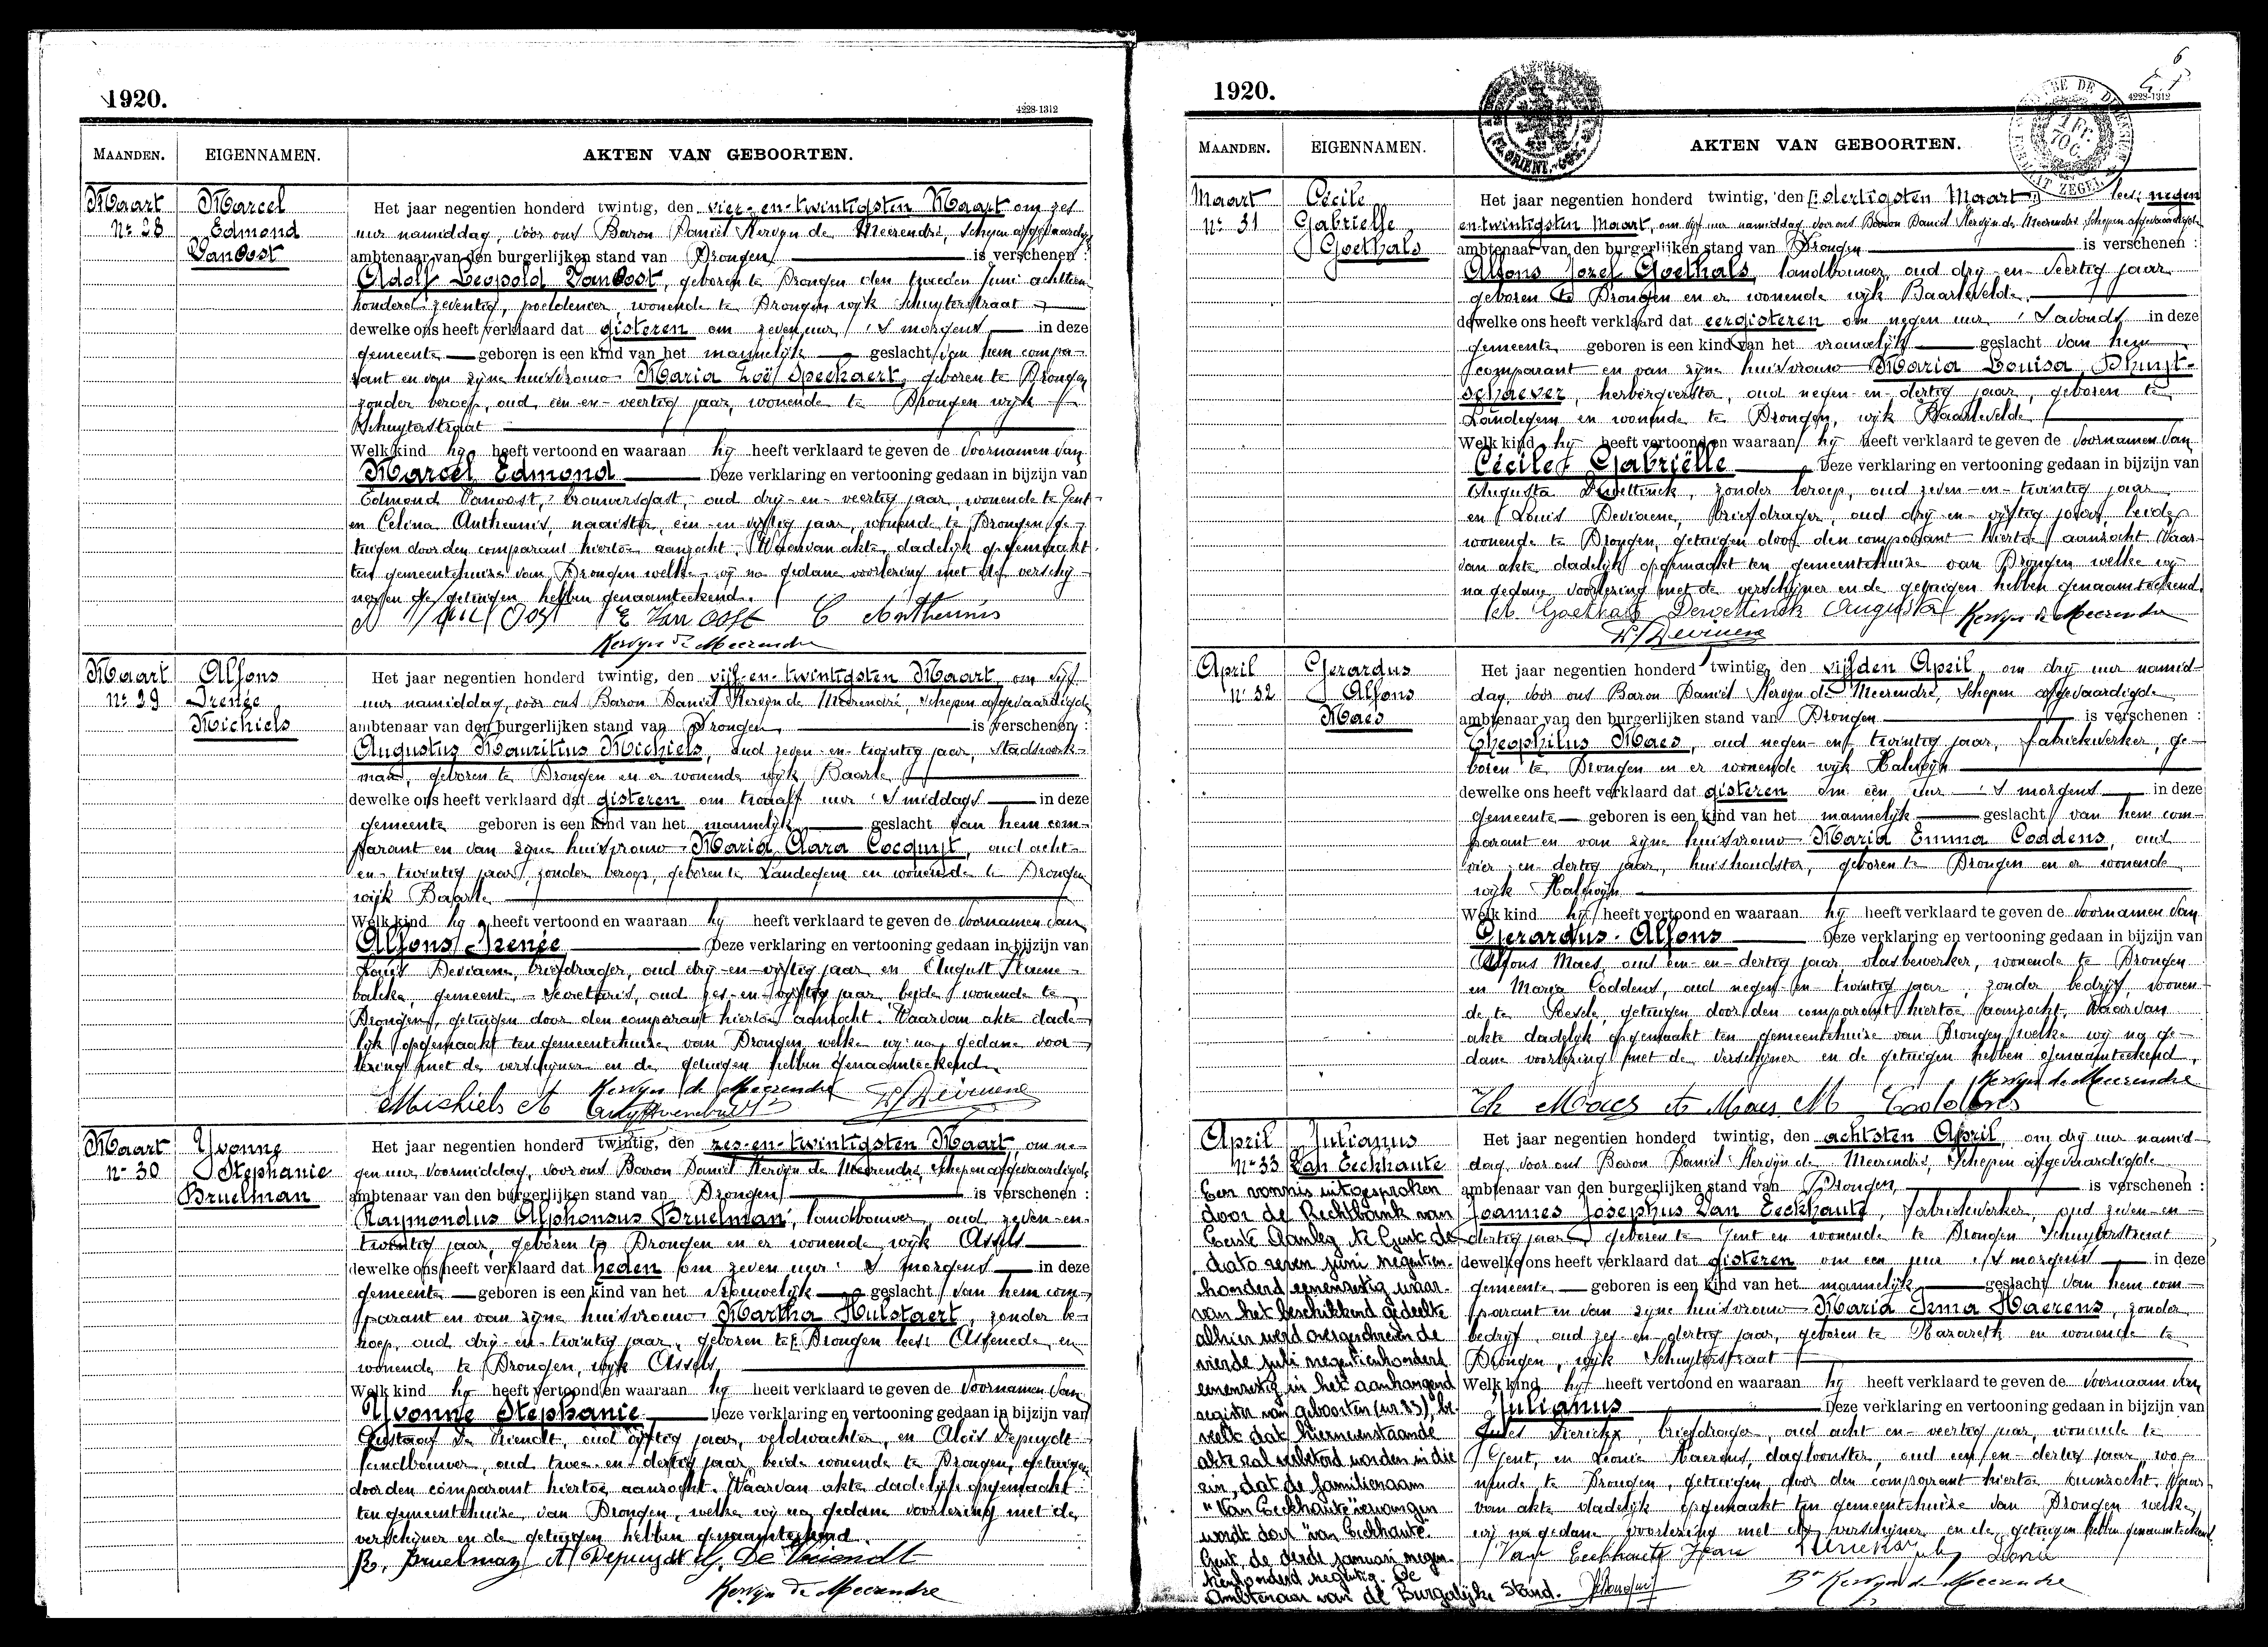 1920.
4228-1312
MAANDEN.
EIGENNAMEN.
AKTEN VAN GEBOORTEN.
Maart
No 28
Marcel
Edmond
VanOost
Het jaar negentien honderd twintig, den vier-en-twintigsten Maart om zes
uur namiddag, voor ons Baron Daniël Kervyn de Meerendré, Schepen afgevaardigde
ambtenaar van den burgerlijken stand van Drongen is verschenen :
Adolf Leopold VanOost, geboren te Drongen den tweeden Juni achttien
honderd zeventig, poeldenier, wonende te Drongen wijk Schuyterstraat
dewelke ons heeft verklaard dat gisteren om zeven uur 's morgens in deze
gemeente geboren is een kind van het mannelijk geslacht van hem compa-
rant en van zijne huisvrouw Maria Zoë Speekaert, geboren te Drongen
zonder beroep, oud een-en-veertig jaar, wonende te Drongen wijk
Schuyterstraat
Welk kind hij heeft vertoond en waaraan hij heeft verklaard te geven de voornamen van
Marcel Edmond Deze verklaring en vertooning gedaan in bijzijn van
Edmond Vanoost, brouwersgast, oud drij-en-veertig jaar, wonende te Gent
en Celina Antheunis, naaister, een-en-vijftig jaar, wonende te Drongen, ge-
tuigen door den comparant hiertoe aanzocht. Waarvan akte dadelijk opgemaakt
ten gemeentehuize van Drongen welke wij na gedane voorlezing met de verschij-
ner en de getuigen hebben genaamteekend.
A Van Oost E Van Oost C Antheunis
Kervyn de Meerendre
Maart
No 29
Alfons
Irenée
Michiels
Het jaar negentien honderd twintig, den vijf-en-twintigsten Maart, om vijf
uur namiddag, voor ons Baron Daniël Kervyn de Meerendré, Schepen afgevaardigde
ambtenaar van den burgerlijken stand van Drongen is verschenen :
Augustus Mauritius Michiels, oud zeven-en-twintig jaar, Stadswerk-
man, geboren te Drongen en er wonende wijk Baarle
dewelke ons heeft verklaard dat gisteren om twaalf uur 's middags in deze
gemeente geboren is een kind van het mannelijk geslacht van hem com-
parant en van zijne huisvrouw Maria Clara Cocquyt, oud acht-
en-twintig jaar, zonder beroep, geboren te Landegem en wonende te Drongen
wijk Baarle
Welk kind hij heeft vertoond en waaraan hij heeft verklaard te geven de voornamen van
Alfons Irenée Deze verklaring en vertooning gedaan in bijzijn van
Louis Deviaene, briefdrager, oud drij-en-vijftig jaar en August
gemeente-Secretaris, oud zes-en-vijftig jaar, beide wonende te
Drongen, getuigen door den comparant hiertoe aanzocht. Waarvan akte dade-
lijk opgemaakt ten gemeentehuize van Drongen welke wij na gedane voor-
lezing met de verschijner en de getuigen hebben genaamteekend
Michiels A Kervyn de Meerendre L Deviaene
Maart
No 30
Yvonne
Stephanie
Bruelman
Het jaar negentien honderd twintig, den zes-en-twintigsten Maart om ne-
gen uur voormiddag, voor ons Baron Daniël Kervyn de Meerendré, Schepen afgevaardigde
ambtenaar van den burgerlijken stand van Drongen is verschenen :
Raymondus Alphonsus Bruelman, landbouwer, oud zeven-en-
twintig jaar, geboren te Drongen en er wonende wijk Assels
dewelke ons heeft verklaard dat heden om zeven uur 's morgens in deze
gemeente geboren is een kind van het vrouwelijk geslacht van hem com-
parant en van zijne huisvrouw Martha Hulstaert, zonder be-
roep, oud drij-en-twintig jaar, geboren te [Drongen lees: Assenede en
wonende te Drongen, wijk Assels
Welk kind hij heeft vertoond en waaraan hij heeft verklaard te geven de voornamen van
Yvonne Stephanie Deze verklaring en vertooning gedaan in bijzijn van
Gustaaf De Vriendt, oud vijftig jaar, veldwachter, en Aloïs Depuydt
landbouwer, oud twee-en-dertig jaar, beide wonende te Drongen, getuigen
door den comparant hiertoe aanzocht. Waarvan akte dadelijk opgemaakt
ten gemeentehuize van Drongen, welke wij na gedane voorlezing met de
verschijner en de getuigen hebben genaamteekend.
R. Bruelman A Depuydt G. De Vriendt
Kervyn de Meerendre
1920.
6
4228-1312
MAANDEN.
EIGENNAMEN.
AKTEN VAN GEBOORTEN.
Maart
No 31
Cécile
Gabriëlle
Goethals
Het jaar negentien honderd twintig, den [dertigsten Maart] lees: negen
en twintigsten Maart, om vijf uur namiddag voor ons Baron Daniël Kervyn de Meerendré Schepen afgevaardigde
ambtenaar van den burgerlijken stand van Drongen is verschenen :
Alfons Jozef Goethals, landbouwer, oud drij-en-veertig jaar
geboren te Drongen en er wonende wijk Baarlevelde
dewelke ons heeft verklaard dat eergisteren om negen uur 's avonds in deze
gemeente geboren is een kind van het vrouwelijk geslacht van hem
comparant en van zijne huisvrouw Maria Louisa
herbergierster, oud negen-en-dertig jaar, geboren te
Landegem en wonende te Drongen, wijk Baarlevelde
Welk kind hij heeft vertoond en waaraan hij heeft verklaard te geven de voornamen van
Cécile Gabriëlle Deze verklaring en vertooning gedaan in bijzijn van
Augusta Dewettinck, zonder beroep, oud zeven-en-twintig jaar
en Louis Deviaene, briefdrager, oud drij-en-vijftig jaar, beide
wonende te Drongen, getuigen door den comparant hiertoe aanzocht. Waar-
van akte dadelijk opgemaakt ten gemeentehuize van Drongen welke wij
na gedane voorlezing met de verschijner en de getuigen hebben genaamteekend.
A. Goethals Dewettinck Augusta Kervyn de Meerendre
L Deviaene
April
No 32
Gerardus
Alfons
Maes
Het jaar negentien honderd twintig, den vijfden April, om drij uur namid-
dag, voor ons Baron Daniël Kervyn de Meerendré, Schepen afgevaardigde
ambtenaar van den burgerlijken stand van Drongen is verschenen :
Theophilus Maes, oud negen-en-twintig jaar, fabriekwerker, ge-
boren te Drongen en er wonende wijk Halewijn
dewelke ons heeft verklaard dat gisteren om één uur 's morgens in deze
gemeente geboren is een kind van het mannelijk geslacht van hem com-
parant en van zijne huisvrouw Maria Emma Coddens, oud
vier-en-dertig jaar, huishoudster, geboren te Drongen en er wonende
wijk Halewijn
Welk kind hij heeft vertoond en waaraan hij heeft verklaard te geven de voornamen van
Gerardus-Alfons Deze verklaring en vertooning gedaan in bijzijn van
Alfons Maes, oud een-en-dertig jaar vlasbewerker, wonende te Drongen
en Maria Coddens, oud negen-en-twintig jaar, zonder bedrijf, wonen-
de te getuigen door den comparant hiertoe aanzocht. Waarvan
akte dadelijk opgemaakt ten gemeentehuize van Drongen welke wij na ge-
dane voorlezing met de verschijner en de getuigen hebben genaamteekend.
Kervyn de Meerendre
Th Maes A Maes M Coddens
April
No 33
Julianus
Van Eeckhaute
Een vonnis uitgesproken
door de Rechtbank van
Eerste Aanleg te Gent de
dato zeven juni negentien-
honderd eenenzestig waar-
van het beschikkend gedeelte
alhier werd overgeschreven de
vierde juli negentienhonderd
eenenzestig in het aanhangend
register van geboorten (nr. 23), be-
veelt dat hiernevenstaande
akte zal verbeterd worden in die
zin, dat de familienaam
"Van Eeckhaute" vervangen
wordt door "van Eeckhaute".
Gent, de derde januari negen-
tienhonderd negentig. De
Ambtenaar van de Burgerlijke Stand.
Het jaar negentien honderd twintig, den achtsten April, om drij uur namid-
dag, voor ons Baron Daniël Kervyn de Meerendré, Schepen afgevaardigde
ambtenaar van den burgerlijken stand van Drongen is verschenen :
Joannes Josephus Van Eeckhaute, fabriekwerker, oud zeven-en-
dertig jaar, geboren te Gent en wonende te Drongen Schuyterstraat
dewelke ons heeft verklaard dat gisteren om een uur 's morgens in deze
gemeente geboren is een kind van het mannelijk geslacht van hem com-
parant en van zijne huisvrouw Maria Irma Haerens, zonder
bedrijf, oud zes-en-dertig jaar, geboren te Nazareth en wonende te
Drongen, wijk Schuyterstraat
Welk kind hij heeft vertoond en waaraan hij heeft verklaard te geven de voornaam van
Julianus Deze verklaring en vertooning gedaan in bijzijn van
Jules Dierickx, briefdrager, oud acht-en-veertig jaar, wonende te
Gent, en Leonie Haerens, dagloonster, oud een-en-dertig jaar, wo-
nende te Drongen, getuigen door den comparant hiertoe aanzocht. Waar-
van akte dadelijk opgemaakt ten gemeentehuize van Drongen welke
wij na gedane voorlezing met de verschijner en de getuigen hebben genaamteekend
Van Eeckhaute Jean
Bn Kervyn de Meerendre